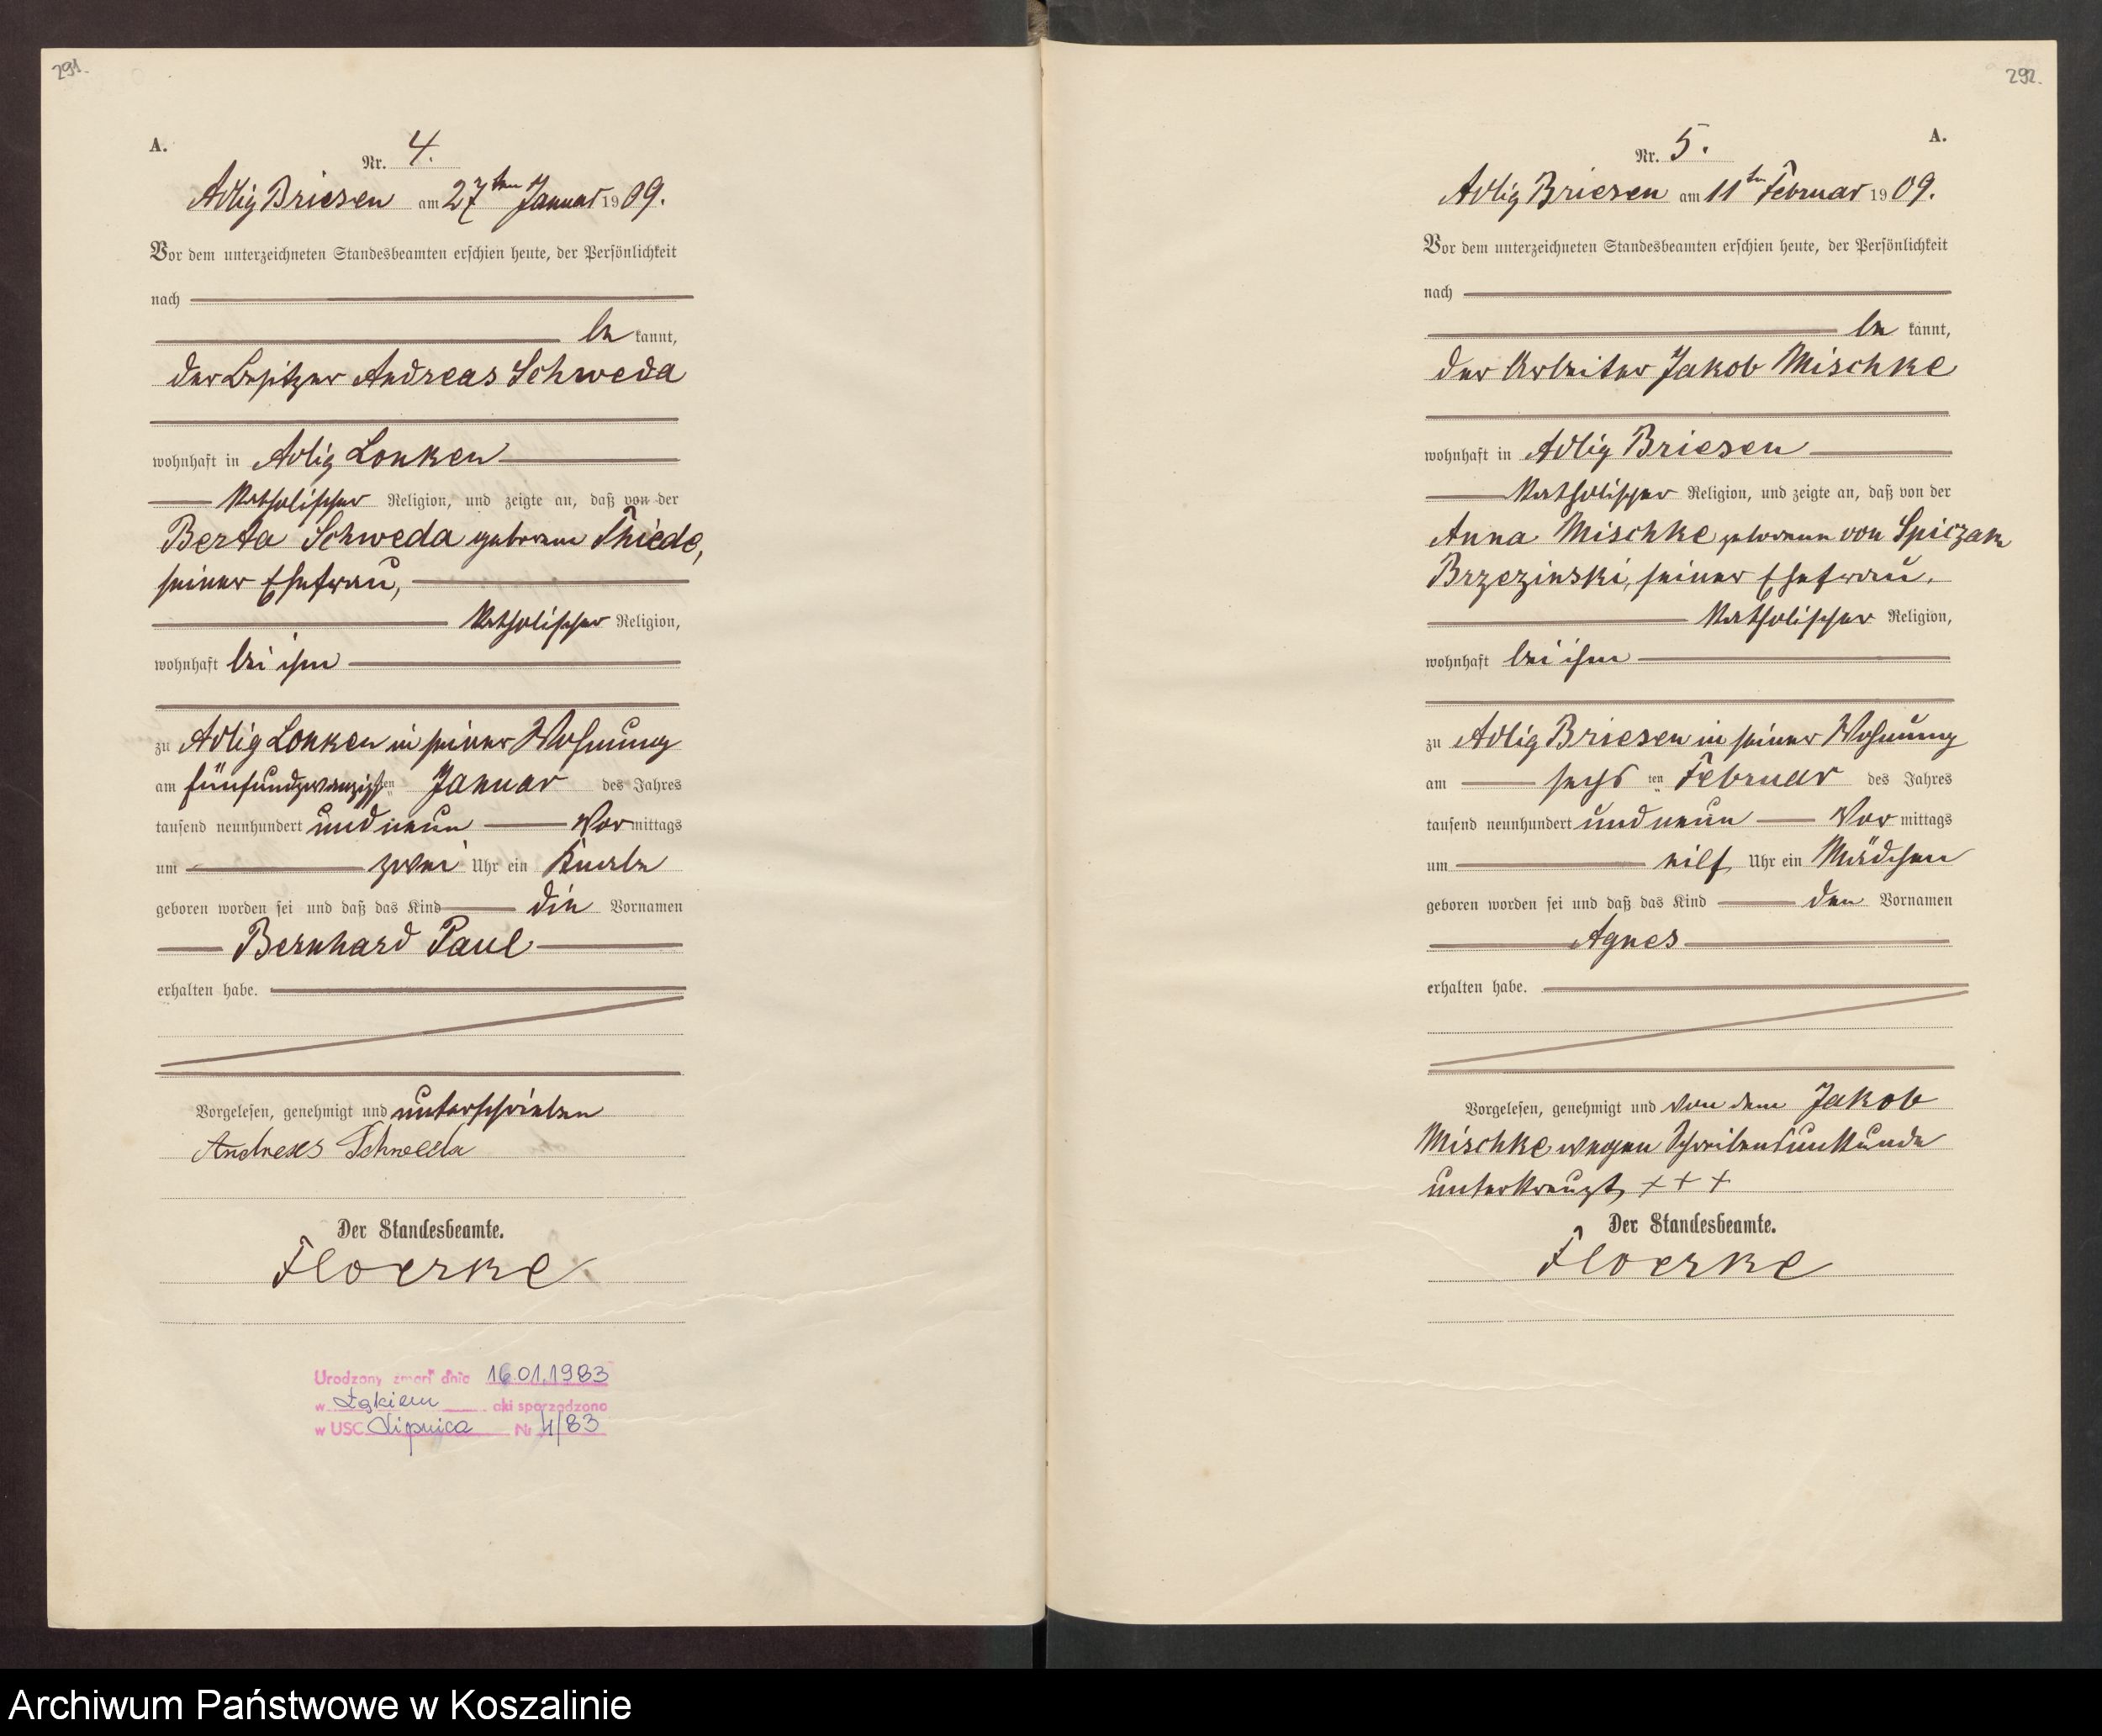 291.
A.
Nr. 4.
Adlig Briesen am 27ten Januar 1909.
Vor dem unterzeichneten Standesbeamten erschien heute, der Persönlichkeit
nach
be kannt,
der Besitzer Andreas Schweda
wohnhaft in Adlig Lonken
katholischer Religion, und zeigte an, daß von der
Berta Schweda geborene Thiede,
seiner Ehefrau,
katholischer Religion,
wohnhaft bei ihm
zu Adlig Lonken in seiner Wohnung
am fünfundzwanzigsten Januar des Jahres
tausend neunhundert und neun Vor mittags
um zwei Uhr ein Knabe
geboren worden sei und daß das Kind die Vornamen
Bernhard Paul
erhalten habe.
Vorgelesen, genehmigt und unterschrieben
Andreas Schweda
Der Standesbeamte.
Floerke
Urodzony zmarł dnia 16.01.1983
w Łąkiem akt sporządzono
w USC Lipnica Nr 4/83
292.
A.
Nr. 5.
Adlig Briesen am 11ten Februar 1909.
Vor dem unterzeichneten Standesbeamten erschien heute, der Persönlichkeit
nach
be kannt,
der Arbeiter Jakob Mischke
wohnhaft in Adlig Briesen
katholischer Religion, und zeigte an, daß von der
Anna Mischke geborene von Spiczak
Brzezinski, seiner Ehefrau.
katholischer Religion,
wohnhaft bei ihm
zu Adlig Briesen in seiner Wohnung
am sechsten Februar des Jahres
tausend neunhundert und neun Vor mittags
um elf Uhr ein Mädchen
geboren worden sei und daß das Kind den Vornamen
Agnes
erhalten habe.
Vorgelesen, genehmigt und von dem Jakob
Mischke wegen Schreibensunkunde
unterkreuzt, + + +
Der Standesbeamte.
Floerke
Archiwum Państwowe w Koszalinie